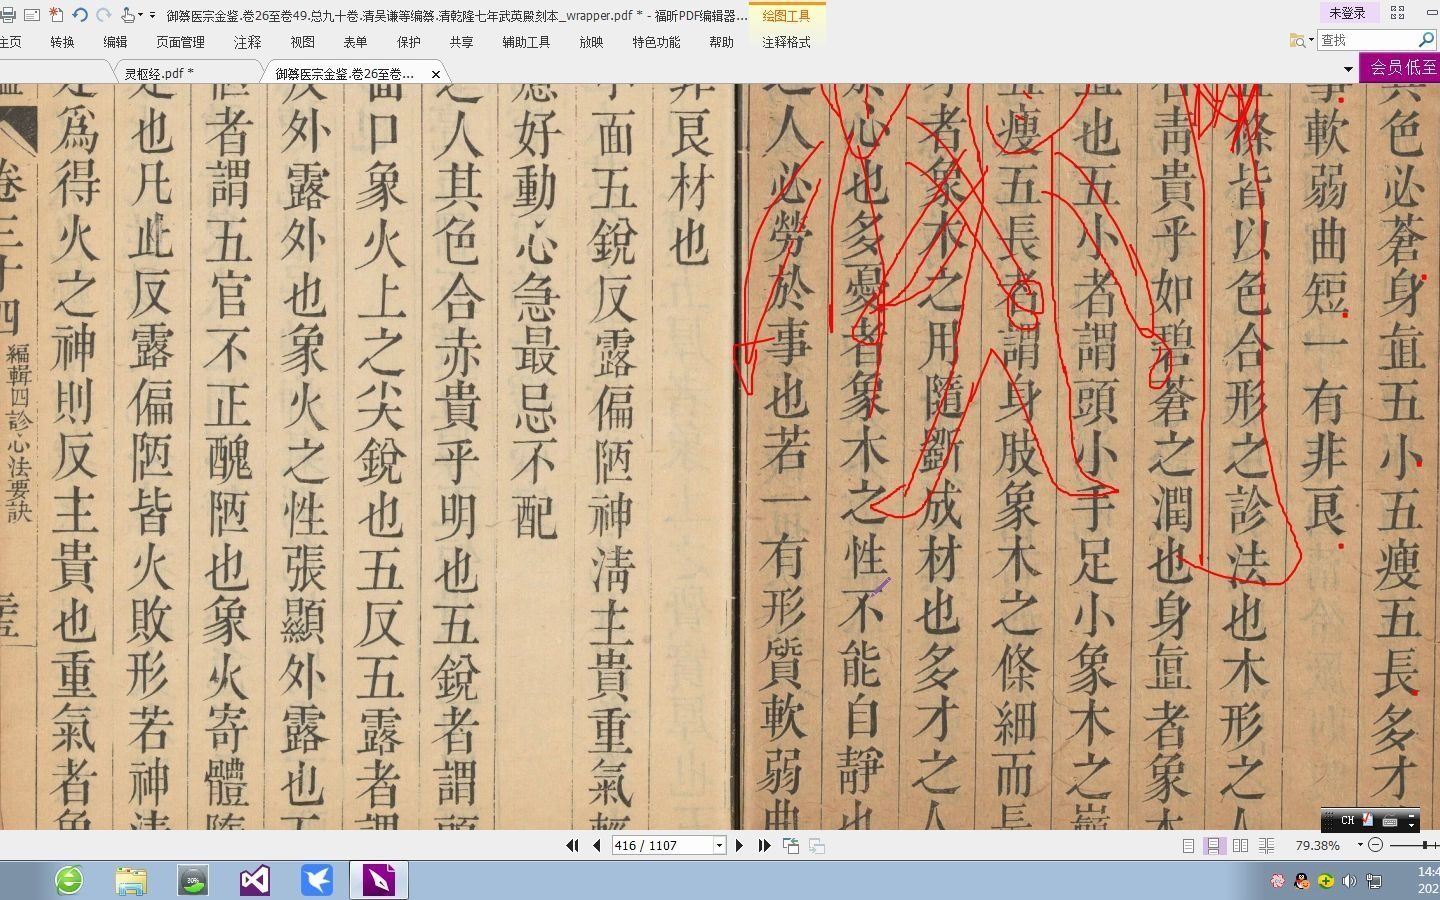 御纂医宗金鉴.卷26至卷49.总九十卷.清吴谦等编纂.清乾隆七年武英殿刻本_wrapper.pdf * - 福昕PDF编辑器...
绘图工具
未登录
主页 转换 编辑 页面管理 注释 视图 表单 保护 共享 辅助工具 放映 特色功能 帮助 注释格式
查找
灵枢经.pdf *
御纂医宗金鉴.卷26至卷...
会员低至
色必蒼身直五小五瘦五長多才
事軟弱曲短一有非良
條皆以色合形之診法也木形之人
青貴乎如碧蒼之潤也身直者象木
直也五小者謂頭小手足小象木之巔
五瘦五長者謂身肢象木之條細而長
才者象木之用隨斵成材也多才之人
勞心也多憂者象木之性不能自靜也
之人必勞於事也若一有形質軟弱曲
非良材也
小面五銳反露偏陋神清主貴重氣輕
急好動心急最忌不配
之人其色合赤貴乎明也五銳者謂頭
面口象火上之尖銳也五反五露者謂
反外露外也象火之性張顯外露也五
陋者謂五官不正醜陋也象火寄體
是也凡此反露偏陋皆火敗形若神清
是為得火之神則反主貴也重氣者魚
卷三十四
編輯四診心法要訣
416 / 1107
79.38%
CH
30%
14:4
202